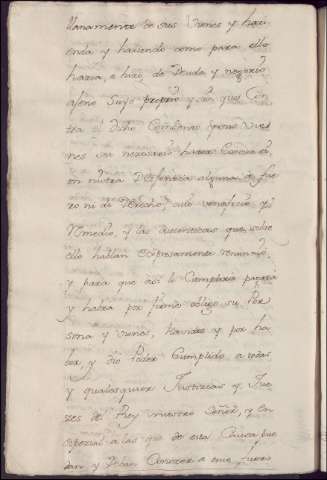 llanamente de sus Vienes y haci
enda y haciendo como para ello
hacia, e hizo, de Deuda y negocio
ajeno suyo proprio y sin que Con
tra el dicho ni sus vie
nes sea necesario hacer
ni otra Dilixencia alguna de fue
ro ni de Derecho, cuio veneficio y
Remedio, y las autenticas que sobre
ello hablan expresamente renunció,
y para que así lo Cumplira pagara
y habra por firme obligo su Per
sona y vienes, havidos y por ha
ber, y dio Poder Cumplido a todas
y qualesquier Justicias y Jue
zes del Rey nuestro Señor, y en
especial a las que de esta Causa pue
dan y deban Conocer a cuio fuero